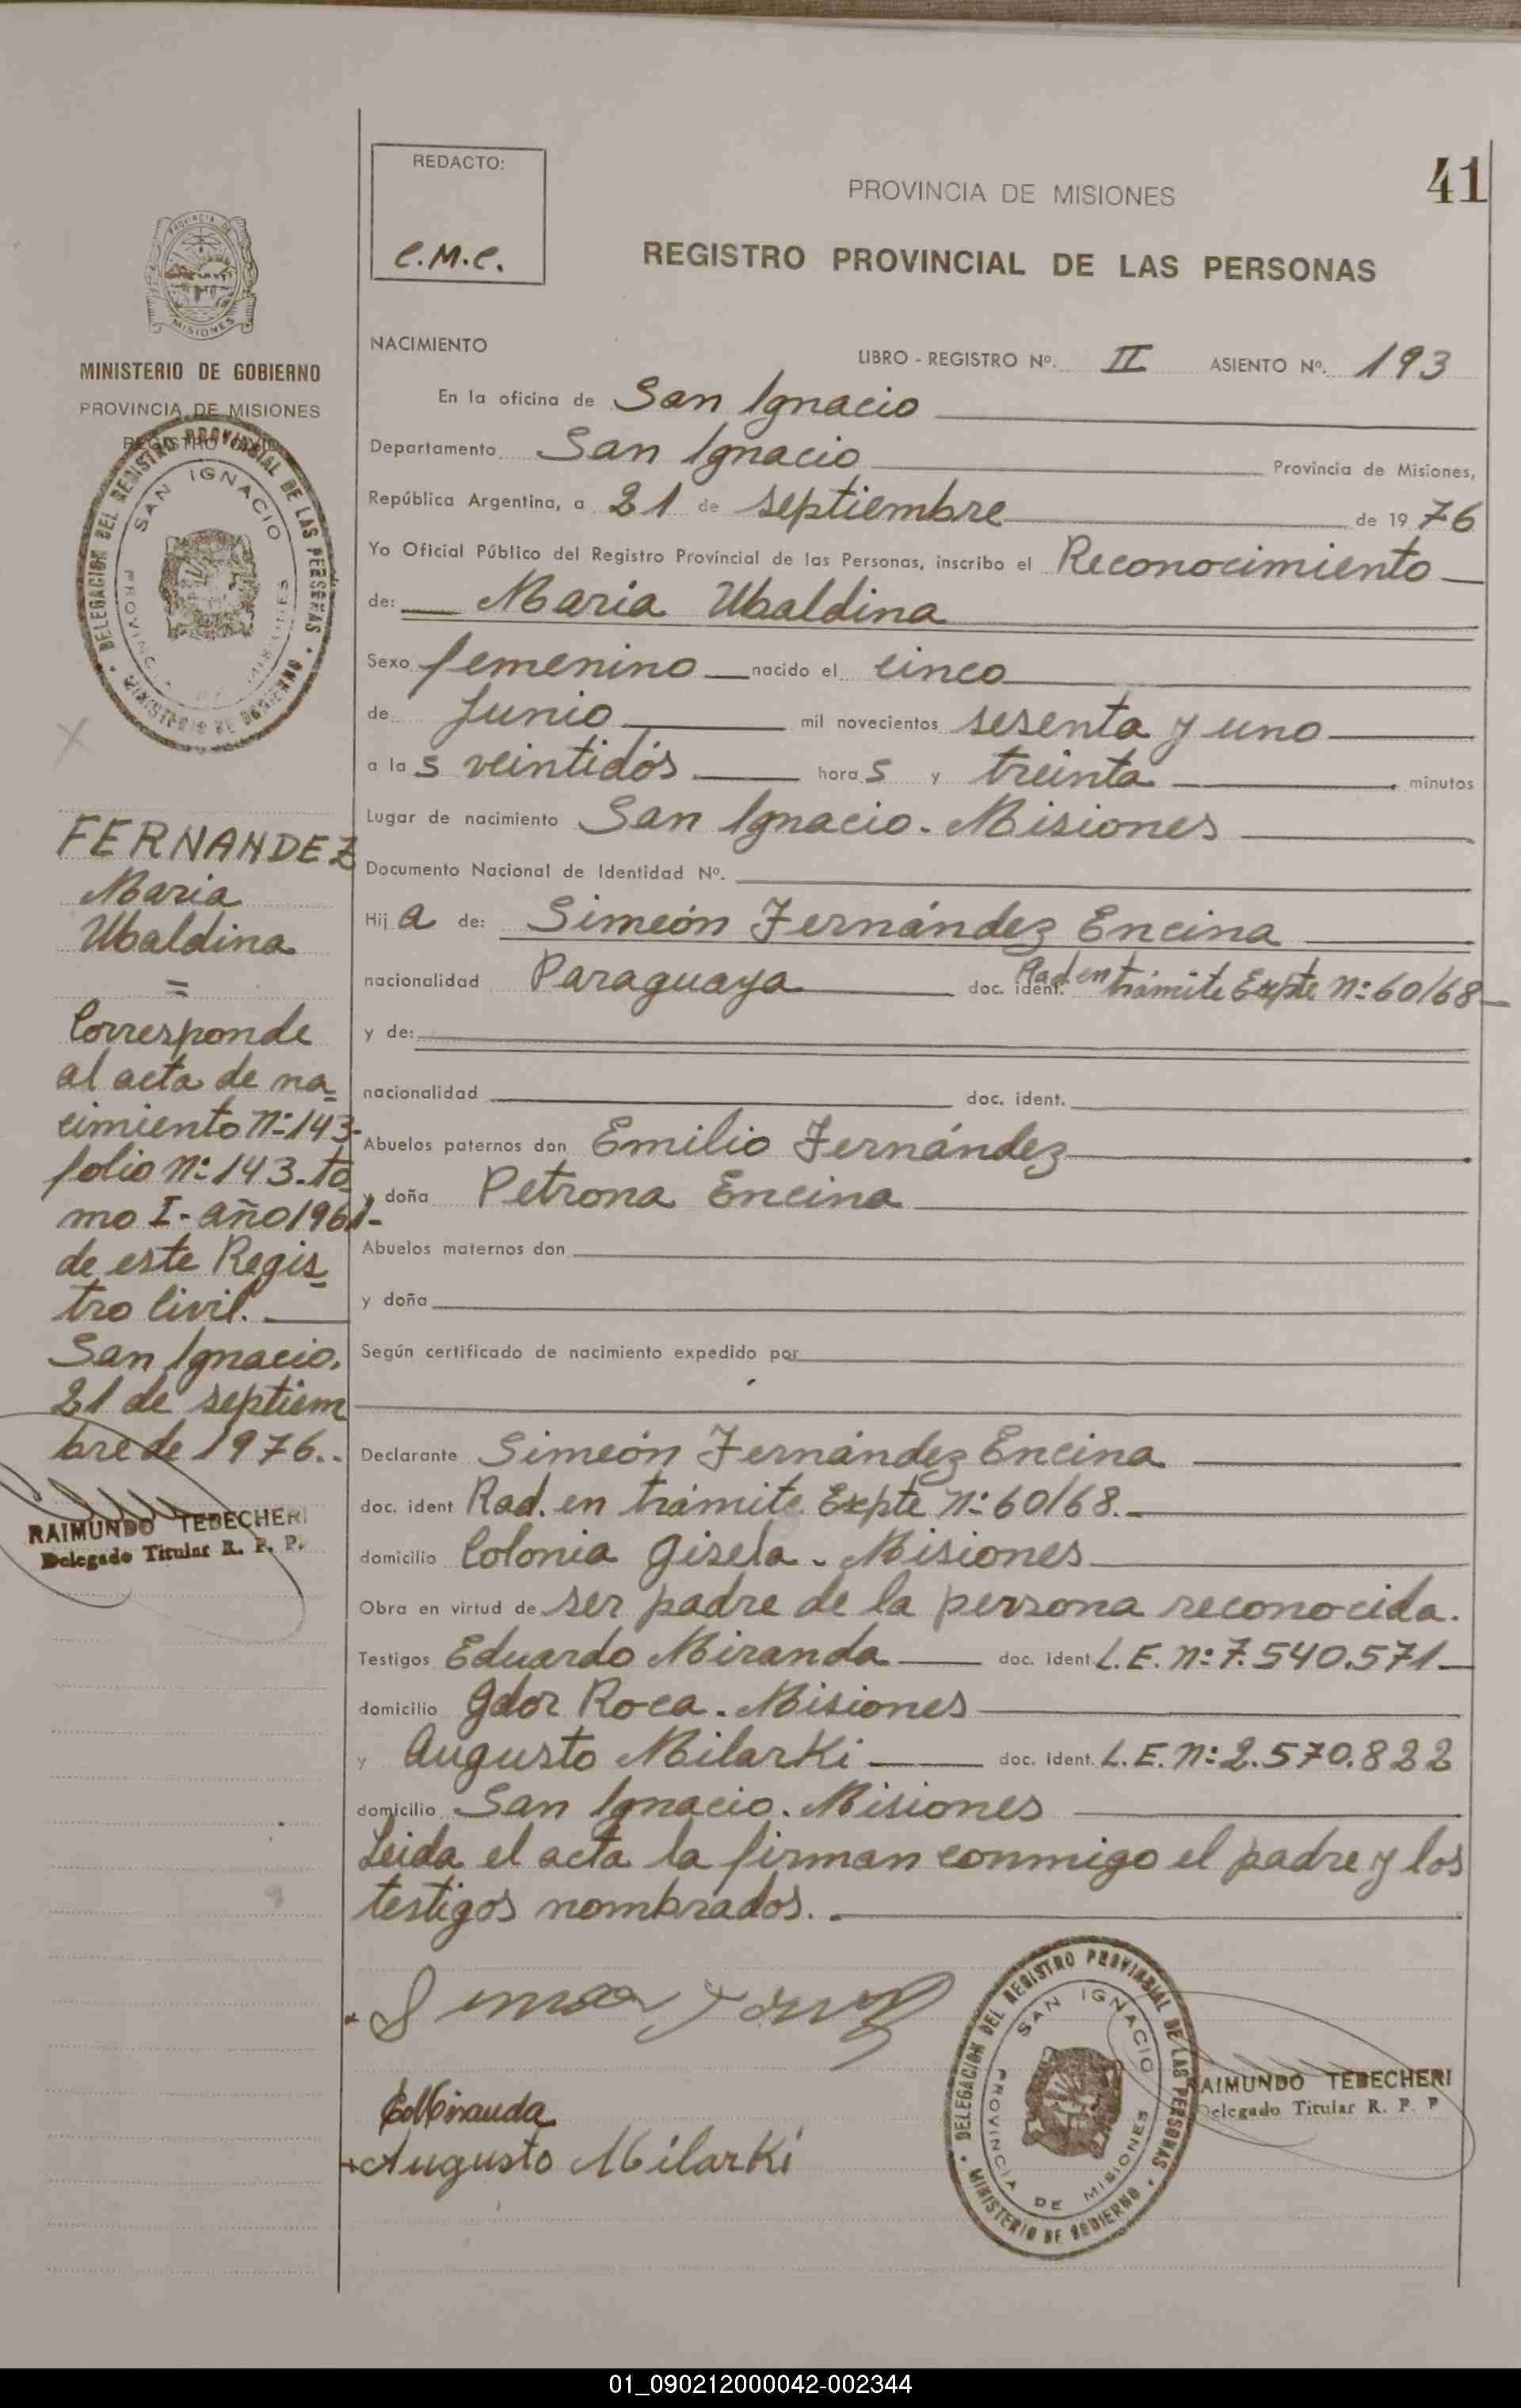 REDACTO:
C.M.C.
PROVINCIA DE MISIONES
41
REGISTRO PROVINCIAL DE LAS PERSONAS
PROVINCIA DE
MISIONES
MINISTERIO DE GOBIERNO
PROVINCIA DE MISIONES
REGISTRO CIVIL
DELEGACION DEL REGISTRO PROVINCIAL DE LAS PERSONAS
SAN IGNACIO
PROVINCIA DE MISIONES
MINISTERIO DE GOBIERNO
FERNANDEZ
Maria
Ubaldina
=
Corresponde
al acta de na
cimiento Nº 143-
folio nº 143. to
mo I - año 1961-
de este Regis
tro Civil.
San Ignacio,
21 de septiem
bre de 1976..
RAIMUNDO TEBECHERI
Delegado Titular R. P. P.
NACIMIENTO
LIBRO - REGISTRO Nº. II ASIENTO Nº. 193
En la oficina de San Ignacio
Departamento San Ignacio Provincia de Misiones,
República Argentina, a 21 de septiembre de 1976
Yo Oficial Público del Registro Provincial de las Personas, inscribo el Reconocimiento
de: Maria Ubaldina
Sexo femenino nacido el cinco
de Junio mil novecientos sesenta y uno
a las veintidós horas y treinta minutos
Lugar de nacimiento San Ignacio. Misiones
Documento Nacional de Identidad Nº.
Hija de: Simeón Fernández Encina
nacionalidad Paraguaya doc. ident. Rad en trámite Expte nº 60/68
y de:
nacionalidad doc. ident.
Abuelos paternos don Emilio Fernández
y doña Petrona Encina
Abuelos maternos don
y doña
Según certificado de nacimiento expedido por
Declarante Simeón Fernández Encina
doc. ident Rad. en trámite Expte nº 60/68.
domicilio Colonia Gisela. Misiones
Obra en virtud de ser padre de la persona reconocida.
Testigos Eduardo Miranda doc. ident L.E. nº 7.540.571
domicilio Gdor Roca. Misiones
y Augusto Milarki doc. ident. L.E. nº 2.570.822
domicilio San Ignacio. Misiones
Leida el acta la firman conmigo el padre y los
testigos nombrados.
EdMiranda
Augusto Milarki
DELEGACION DEL REGISTRO PROVINCIAL DE LAS PERSONAS
SAN IGNACIO
PROVINCIA DE MISIONES
MINISTERIO DE GOBIERNO
RAIMUNDO TEBECHERI
Delegado Titular R. P. P
01_090212000042-002344